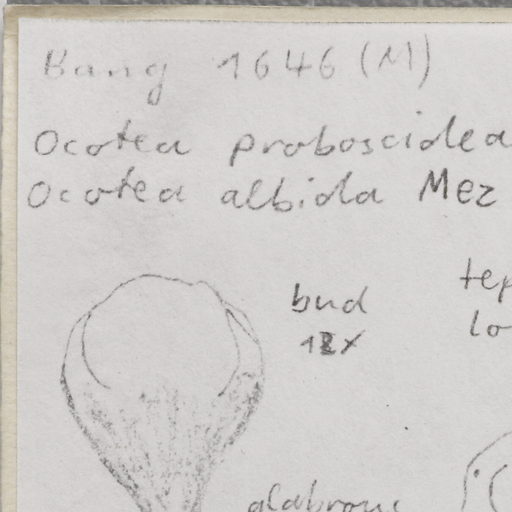 Bang 1646 (M)
Ocotea proboscidea
Ocotea albida Mez
bud
12x
tep
lo
glabrous